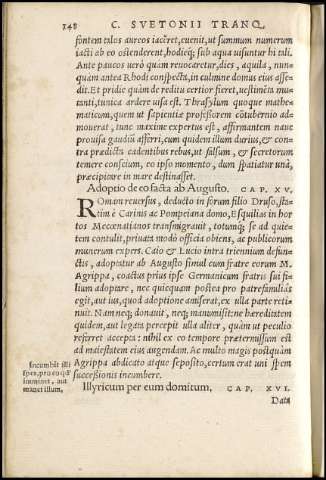 148 C. SVETONII TRANQ.
fontem talos aureos iaceret, euenit, ut summum numerum
iacti ab eo ostenderent, hodieq; sub aqua uisuntur hi tali.
Ante paucos uerò quàm reuocaretur, dies, aquila, nun-
quam antea Rhodi conspecta, in culmine domus eius asse-
dit. Et pridie quàm de reditu certior fieret, uestimēta mu-
tanti, tunica ardere uisa est. Thrasyllum quoque mathe-
maticum, quem ut sapientiæ professorem cōtubernio ad-
mouerat, tunc maxime expertus est, affirmantem naue
prouisa gaudiū afferri, cum quidem illum durius, & con-
tra prædicta cadentibus rebus, ut falsum, & secretorum
temere conscium, eo ipso momento, dum spatiatur unà,
præcipitare in mare destinasset.
Adoptio de eo facta ab Augusto. CAP. XV.
Romam reuersus, deducto in forum filio Druso, sta-
tim è Carinis ac Pompeiana domo, Esquilias in hor
tos Mecœnatianos transmigrauit, totumq; se ad quie-
tem contulit, priuata modò officia obiens, ac publicorum
munerum expers. Caio & Lucio intra triennium defun-
ctis, adoptatur ab Augusto simul cum fratre eorum M.
Agrippa, coactus prius ipse Germanicum fratris sui fi-
lium adoptare, nec quicquam postea pro patrefamiliâs
egit, aut ius, quod adoptione amiserat, ex ulla parte reti-
nuit. Nam neq; donauit, neq; manumisit: ne hæreditatem
quidem, aut legata percepit ulla aliter, quàm ut peculio
referret accepta: nihil ex eo tempore prætermissum est
ad maiestatem eius augendam. Ac multo magis postquàm
Agrippa abdicato atque seposito, certum erat uni spem
successionis incumbere.
incumbit illi
spes, pro eo qđ
imminet, aut
manet illum.
Illyricum per eum domitum. CAP. XVI.
Data